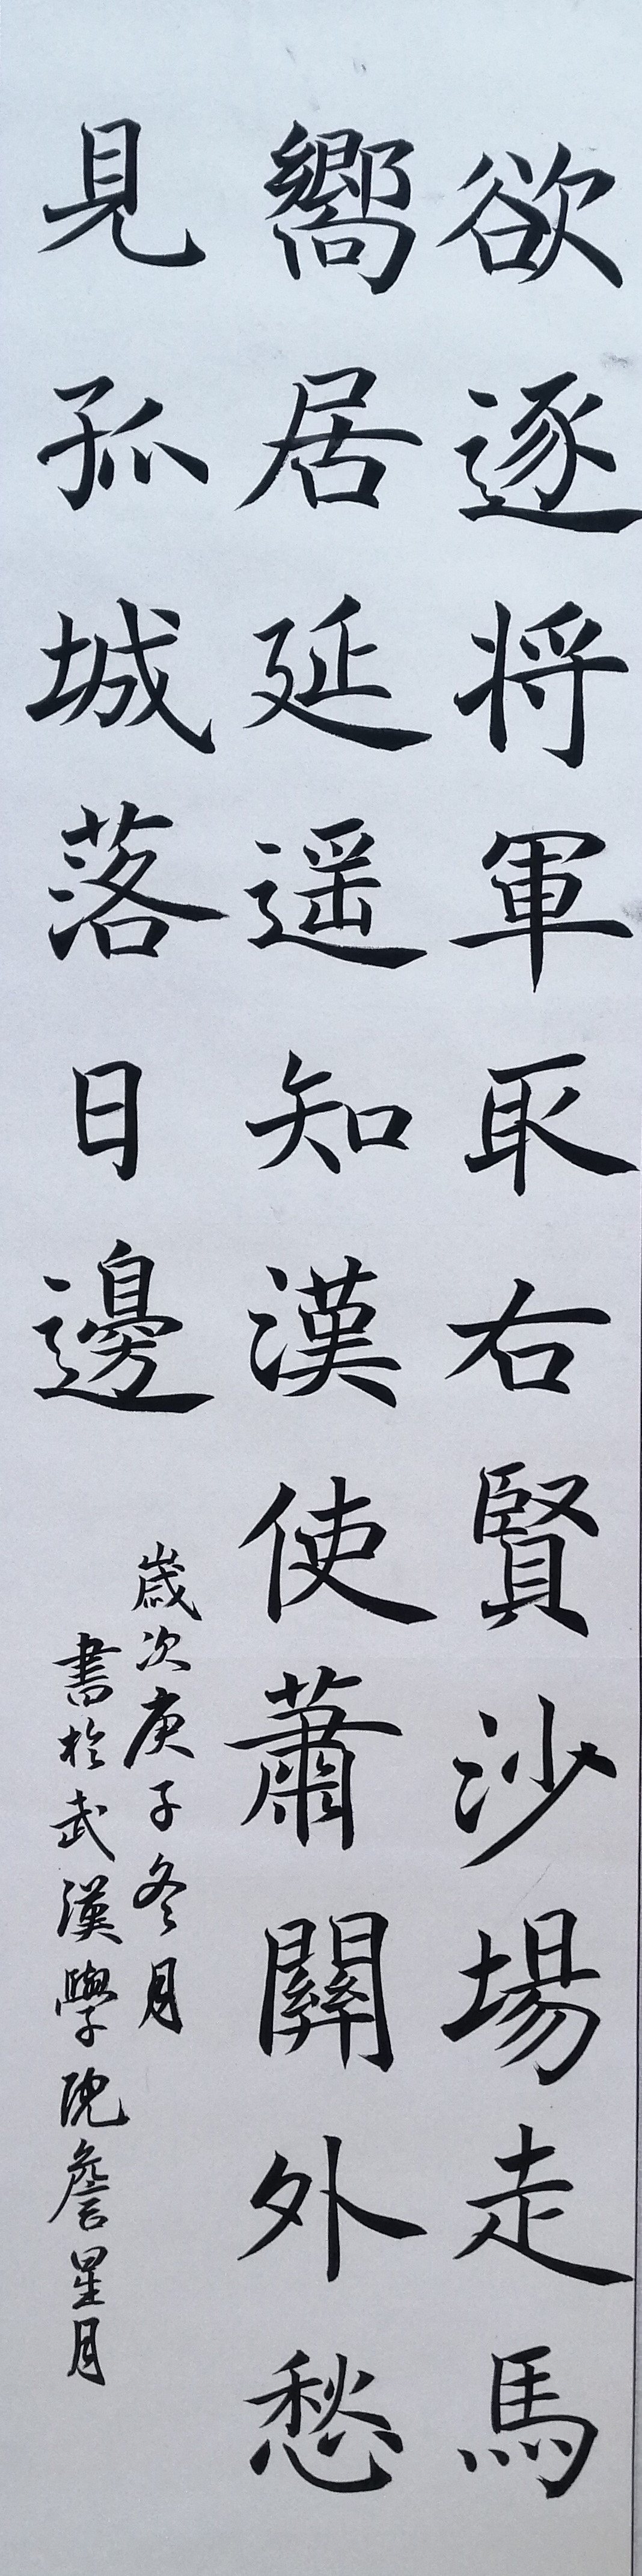 欲逐将軍取右賢沙場走馬
嚮居延遥知漢使蕭關外愁
見孤城落日邊
歲次庚子冬月
書於武漢學院詹星月